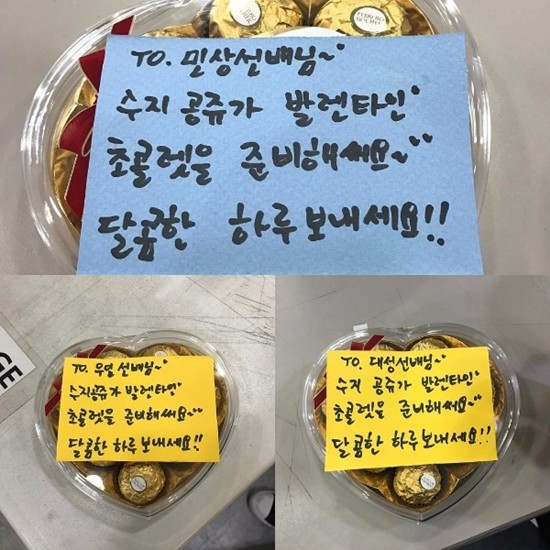 FERRERO
ROCHER
TO. 민상선배님~
수지 공쥬가 발렌타인
초콜렛을 준비해써요~
달콤한 하루보내세요!!
GE
TO. 우영 선배님~
수지공쥬가 발렌타인
초콜렛을 준비해써요~
달콤한 하루보내세요!!
TO. 대성선배님~
수지 공쥬가 발렌타인
초콜렛을 준비해써요~
달콤한 하루보내세요!!